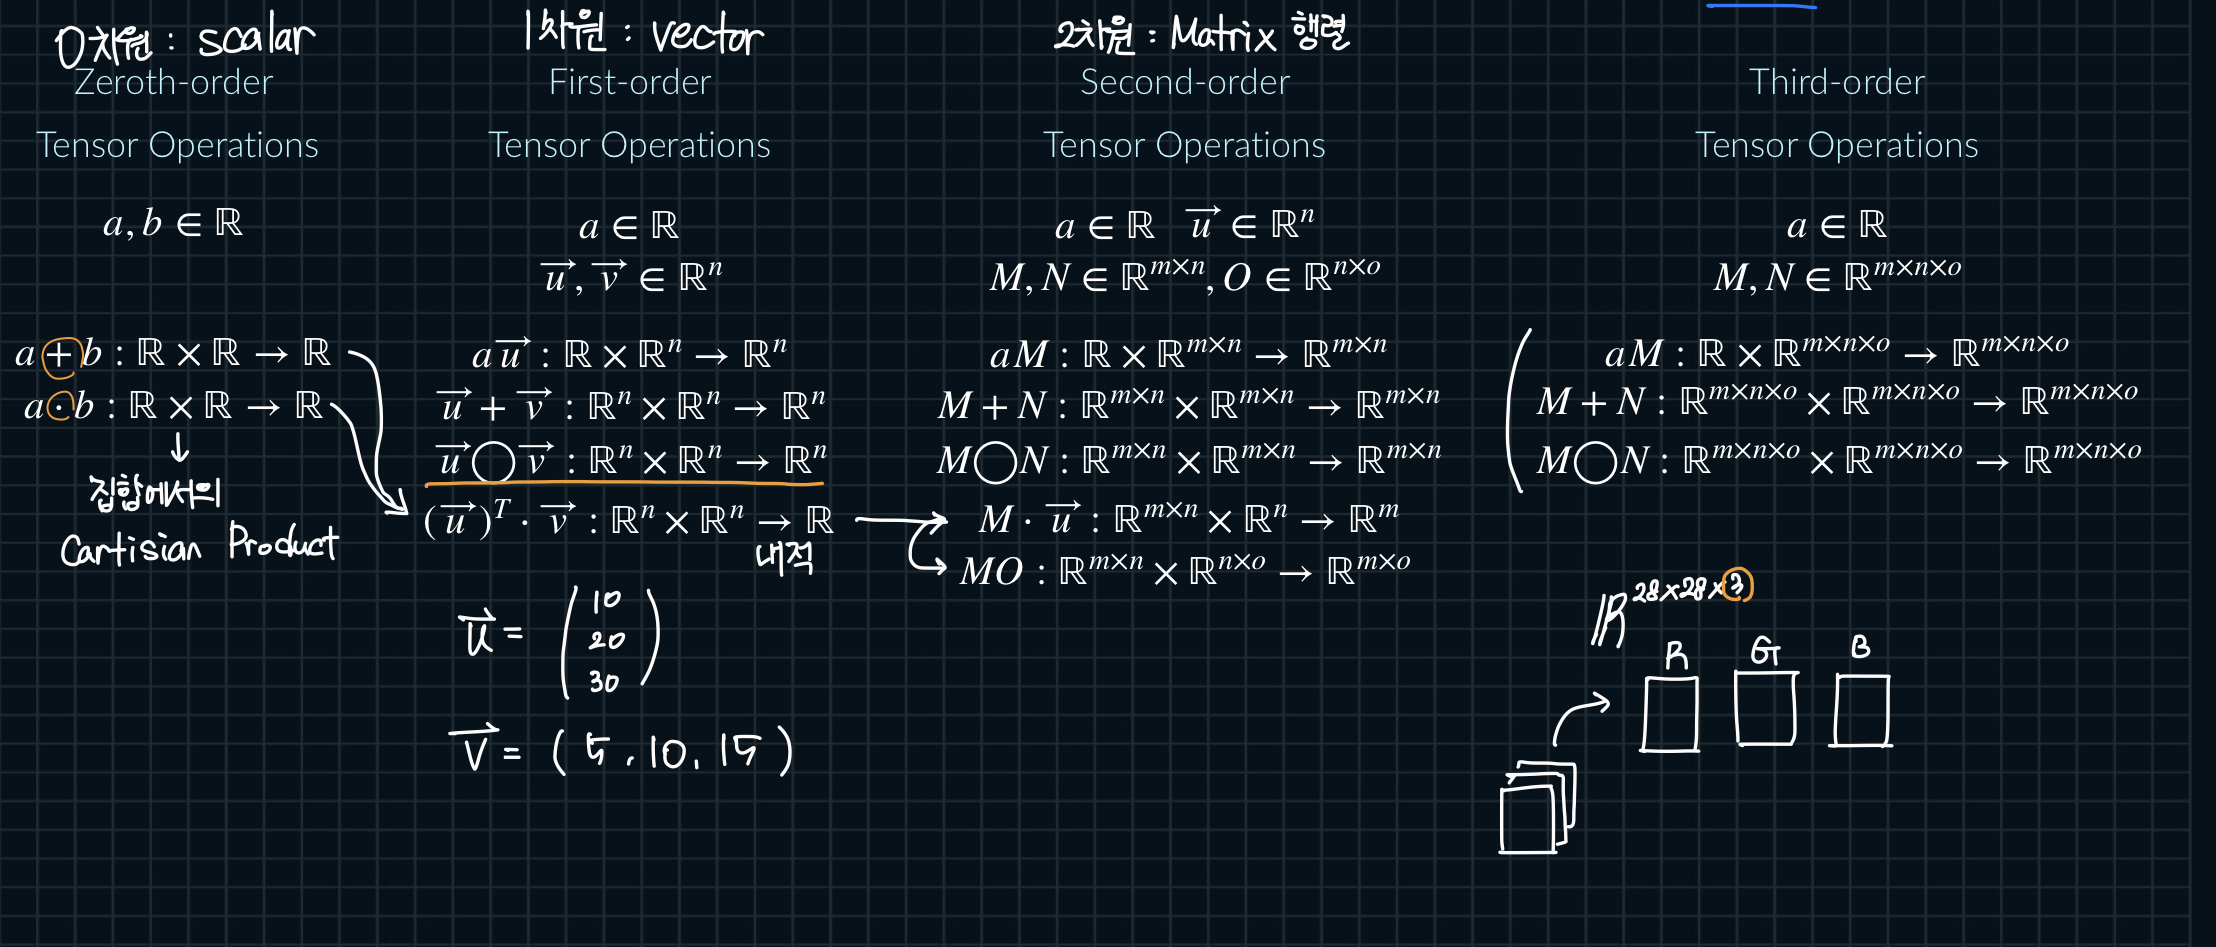 0차원 : scalar
Zeroth-order
Tensor Operations
a, b ∈ ℝ
a + b : ℝ × ℝ → ℝ
a · b : ℝ × ℝ → ℝ
↓
집합에서의
Cartisian Product
1차원 : vector
First-order
Tensor Operations
a ∈ ℝ
u⃗, v⃗ ∈ ℝⁿ
au⃗ : ℝ × ℝⁿ → ℝⁿ
u⃗ + v⃗ : ℝⁿ × ℝⁿ → ℝⁿ
u⃗ ◯ v⃗ : ℝⁿ × ℝⁿ → ℝⁿ
(u⃗)ᵀ · v⃗ : ℝⁿ × ℝⁿ → ℝ
내적
u⃗ = (10
20
30)
v⃗ = (5, 10, 15)
2차원 : Matrix 행렬
Second-order
Tensor Operations
a ∈ ℝ u⃗ ∈ ℝⁿ
M, N ∈ ℝ^{m×n}, O ∈ ℝ^{n×o}
aM : ℝ × ℝ^{m×n} → ℝ^{m×n}
M + N : ℝ^{m×n} × ℝ^{m×n} → ℝ^{m×n}
M◯N : ℝ^{m×n} × ℝ^{m×n} → ℝ^{m×n}
M · u⃗ : ℝ^{m×n} × ℝⁿ → ℝᵐ
MO : ℝ^{m×n} × ℝ^{n×o} → ℝ^{m×o}
Third-order
Tensor Operations
a ∈ ℝ
M, N ∈ ℝ^{m×n×o}
aM : ℝ × ℝ^{m×n×o} → ℝ^{m×n×o}
M + N : ℝ^{m×n×o} × ℝ^{m×n×o} → ℝ^{m×n×o}
M◯N : ℝ^{m×n×o} × ℝ^{m×n×o} → ℝ^{m×n×o}
ℝ^{28×28×3}
R G B